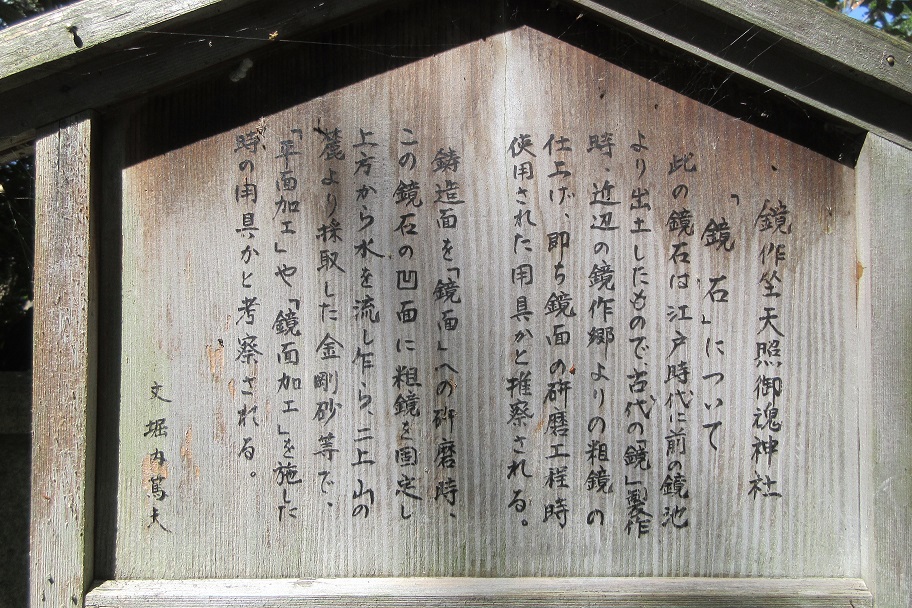 鏡作坐天照御魂神社
「鏡石」について
此の鏡石は江戸時代に前の鏡池
より出土したもので古代の「鏡」製作
時、近辺の鏡作郷よりの粗鏡の
仕上げ、即ち鏡面の研磨工程時
使用された用具かと推察される。
鋳造面を「鏡面」への研磨時、
この鏡石の凹面に粗鏡を固定し
上方から水を流し乍ら、二上山の
麓より採取した金剛砂等で、
「平面加工」や「鏡面加工」を施した
時の用具かと考察される。
文 堀内篤夫